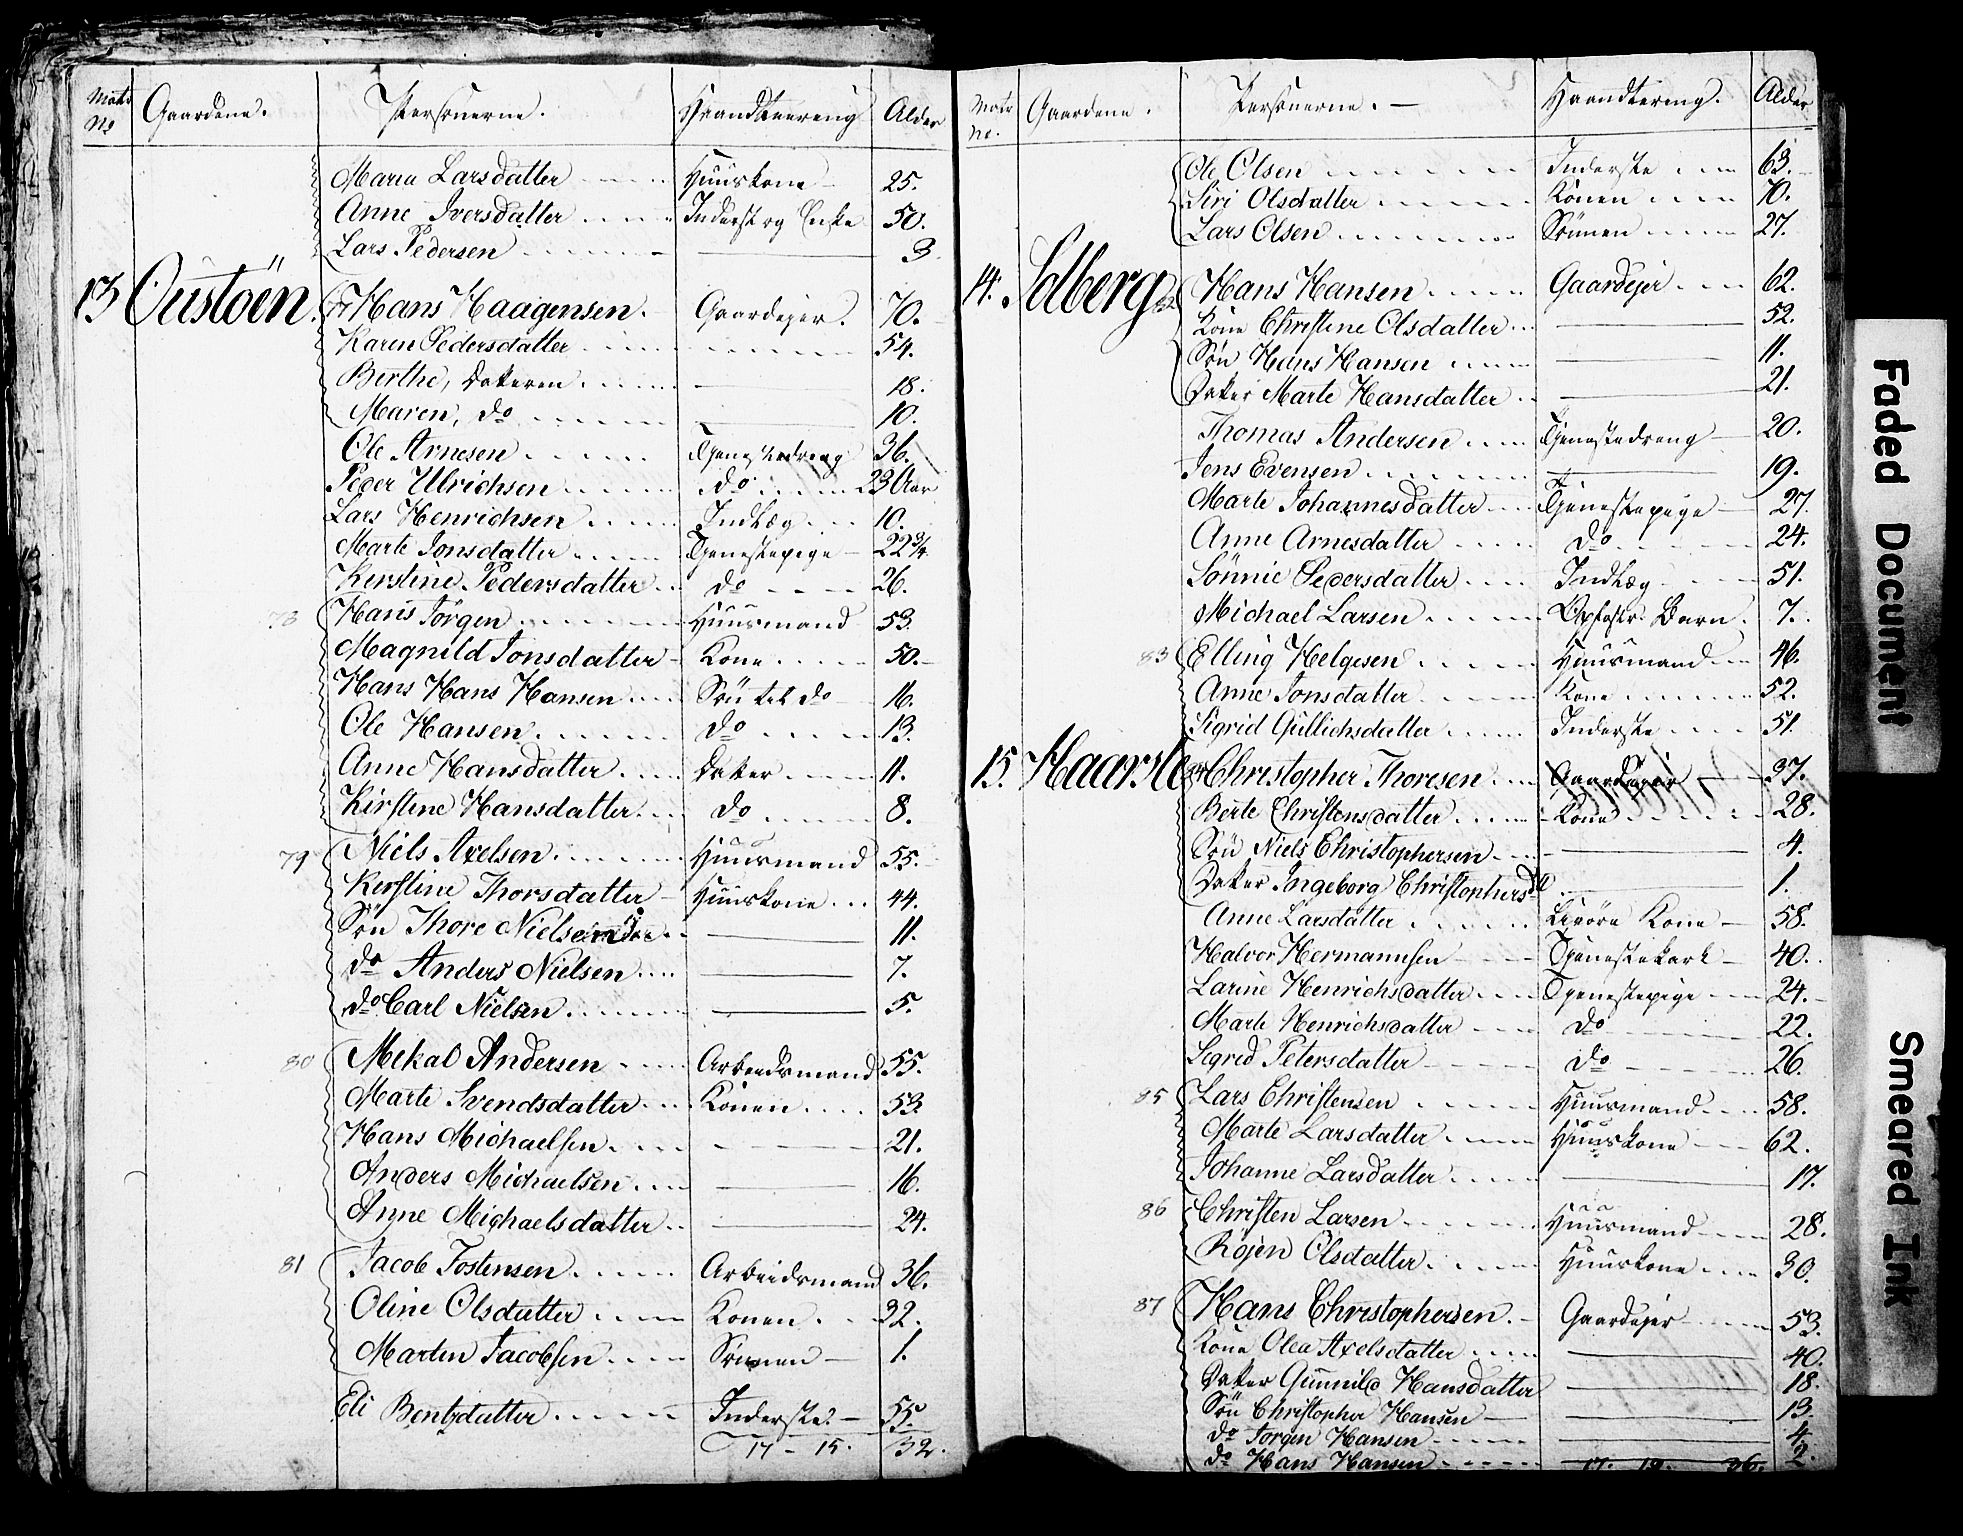 Matr No Gaardene. Personerne. Haandteering Alder
Maria Larsdatter Huuskone 25.
Anne Iversdatter Inderst og Enke 50.
Lars Pedersen 3.
13 Oustöen. Hans Haagensen. Gaardejer. 70.
Karen Pedersdatter 54.
Berthe, Datteren 18.
Maren, do 10.
Ole Arnesen Tjenestedreng 36.
Peder Ulrichsen do 23 Aar
Lars Henrichsen Indlæg 10.
Marte Jonsdatter Tjenestepige 22 3/4
Kerstine Pedersdatter do 26.
78 Hans Jörgen Huusmand 53.
Magnild Jonsdatter Kone 50.
Hans Hans Hansen Sön til do 16.
Ole Hansen do 13.
Anne Hansdatter Datter 11.
Kirstine Hansdatter do 8.
79 Niels Axelsen Huusmand 55.
Kerstine Thorsdatter Huuskone 44.
Sön Thore Nielsen 11.
do Anders Nielsen 7.
do Carl Nielsen 5.
80 Mekal Andersen Arbeidsmand 55.
Marte Svendsdatter Konen 53.
Hans Michaelsen 21.
Anders Michaelsen 16.
Anne Michaelsdatter 24.
81 Jacob Tostensen Arbeidsmand 36.
Oline Olsdatter Konen 32.
Marten Jacobsen Sönnen 1.
Eli Bentzdatter Inderste 55.
17 - 15. 32.
Matr No. Gaardene. Personerne. Haandtering. Alder
Ole Olsen Inderste 63.
Siri Olsdatter Konen 70.
Lars Olsen Sönnen 27.
14. Solberg 82 Hans Hansen Gaardejer 62.
Kone Christine Olsdatter 52.
Sön Hans Hansen 11.
Datter Marte Hansdatter 21.
Thomas Andersen Tjenestedreng 20.
Jens Evensen 19.
Marte Johannesdatter Tjenestepige 27.
Anne Arnesdatter do 24.
Sönnie Pedersdatter Indlæg 51.
Michael Larsen Opfostr. Barn. 7.
83 Elling Helgesen Huusmand 46.
Anne Jonsdatter Kone 52.
Sigrid Gullichsdatter Inderste 51.
15. Haarste 84 Christopher Thoresen Gaardejer 37.
Berte Christensdatter Kone 28.
Sön Niels Christophersen 4.
Datter Ingeborg Christophersd 1.
Anne Larsdatter Livöre Kone 58.
Halvor Hermannsen Tjenestekarl 40.
Larine Henrichsdatter Tjenestepige 24.
Marte Henrichsdatter do 22.
Sigrid Petersdatter do 26.
85 Lars Christensen Huusmand 58.
Marte Larsdatter Huuskone 62.
Johanne Larsdatter 17.
86 Christen Larsen Huusmand 28.
Rojen Olsdatter Huuskone 30.
87 Hans Christophersen Gaardejer 53.
Kone Olea Axelsdatter 40.
Datter Gunnild Hansdatter 18.
Sön Christopher Hansen 13.
do Jorgen Hansen 4.
do Hans Hansen 2.
17. 19. 36.
Faded Document
Smeared Ink